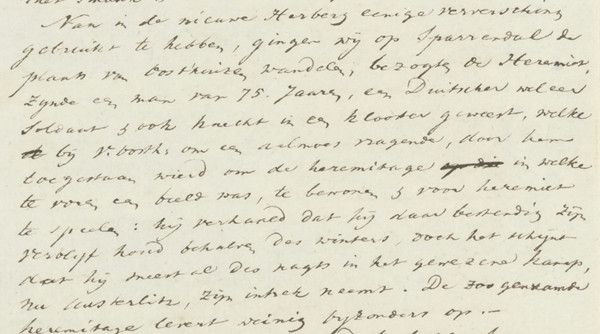 Na in de nieuwe Herberg eenige verversching
gebruikt te hebben, gingen wij op Sparrendal de
plaats van Oosthuizen wandelen, bezogten de Heremiet,
zijnde een man van 75. Jaaren, een Duitscher weleer
Soldaat & ook knecht in een klooster geweest, welke
bij v. Oosth: om een aalmoes vragende, door hem
toegestaan wierd om de heremitage in welke
te voren een beeld was, te bewonen & voor heremiet
te speelen: hij verhaald dat hij daar bestendig zijn
verblijf houd behalven des winters, doch het schijnt
dat hij meestal des nagts in het gewezene kamp,
nu Austerlitz, zijn intrek neemt. De zoogenaamde
heremitage levert weinig byzonders op. —